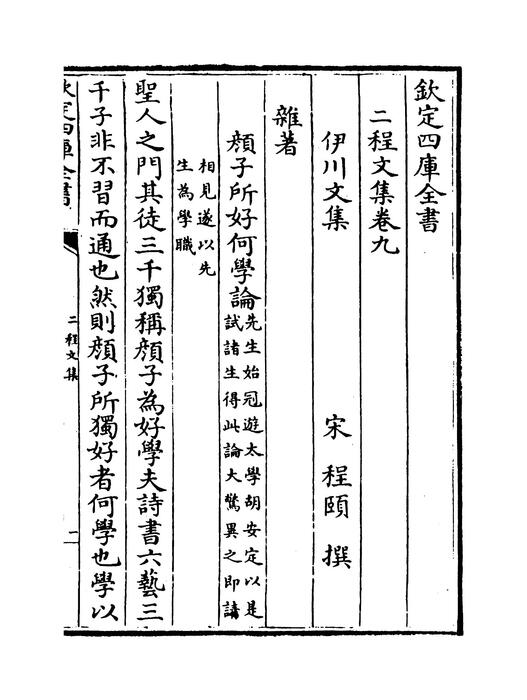 欽定四庫全書
二程文集卷九
伊川文集　宋　程頤　撰
雜著
顔子所好何學論先生始冠遊太學胡安定以是
試諸生得此論大驚異之即請
相見遂以先
生為學職
聖人之門其徒三千獨稱顔子為好學夫詩書六藝三
千子非不習而通也然則顔子所獨好者何學也學以
欽定四庫全書
二程文集
一